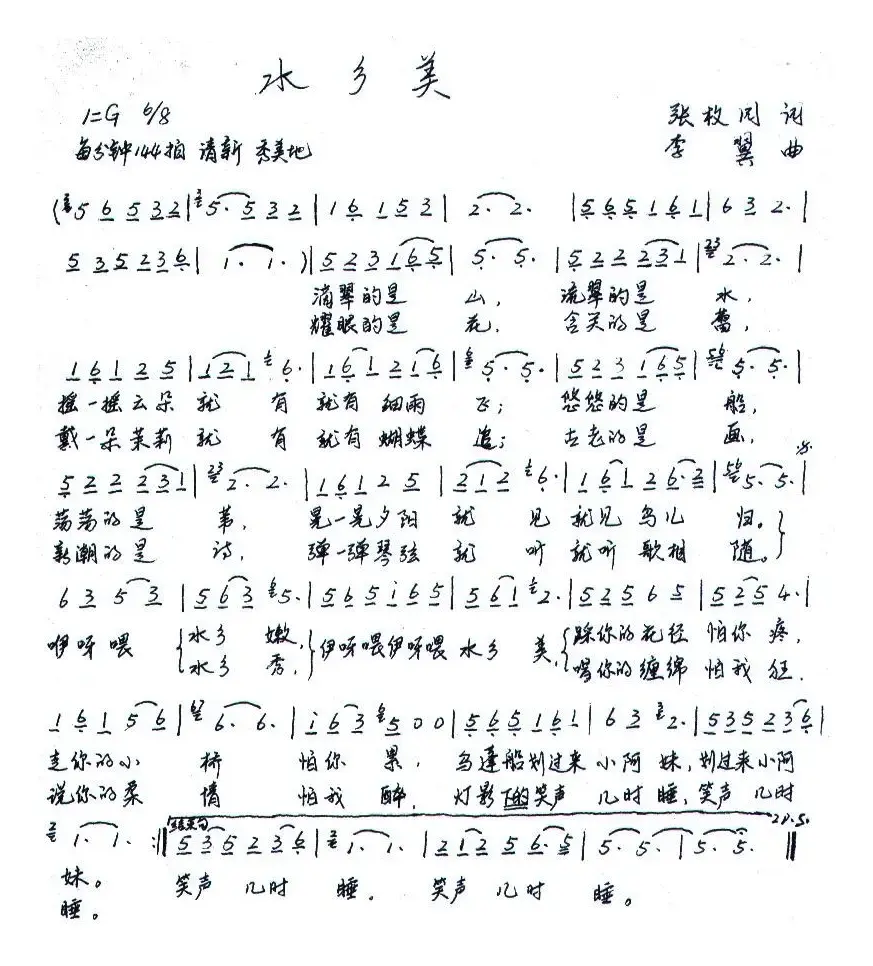 水乡美
1=G 6/8
张枚同 词
每分钟144拍 清新 秀美地
李翼 曲
(5 6 5 3 2 | 5. 5 3 2 | 1 6 1 5 3 | 2. 2. | 5 6 5 1 6 1 | 6 3 2. |
5 3 5 2 3 6 | 1. 1. ) | 5 2 3 1 6 5 | 5. 5. | 5 2 2 2 3 1 | 2. 2. |
滴翠的是 山, 流翠的是 水,
耀眼的是 花, 含笑的是 蕾,
1 6 1 2 5 | 1 2 1 6. | 1 6 1 2 1 6 | 5. 5. | 5 2 3 1 6 5 | 5. 5. |
摇一摇云朵 就 有 就有 细雨 飞; 悠悠的是 船,
戴一朵茉莉 就 有 就有 蝴蝶 追; 古老的是 画,
5 2 2 2 3 1 | 2. 2. | 1 6 1 2 5 | 2 1 2 6. | 1 6 1 2 6. 2 | 5. 5. |
荡荡的是 苇, 晃一晃夕阳 就 见 就见 鸟儿 归。
新潮的是 诗, 弹一弹琴弦 就 听 就听 歌相 随。
6 3 5 3 | 5 6 3 5. | 5 6 5 i 6 5 | 5 6 1 2. | 5 2 5 6 5 | 5 2 5 4. |
咿呀喂 水乡 嫩, 伊呀喂伊呀喂 水乡 美, 踩你的花径 怕你 疼,
水乡 秀, 喝你的缠绵 怕我 狂,
1 6 1 5 6 | 6. 6. | i 6 3 5 0 0 | 5 6 5 1 6 1 | 6 3 2. | 5 3 5 2 3 6 |
走你的小 桥 怕你 累, 乌蓬船划过来 小阿 妹, 划过来小阿
说你的柔 情 怕我 醉, 灯影下的笑声 几时 睡, 笑声 几时
1. 1. :‖ 结束句 5 3 5 2 3 6 | 1. 1. | 2 1 2 5 6. 5 | 5. 5. | 5. 5. ‖
妹。 笑声 几时 睡。 笑声 几时 睡。
睡。